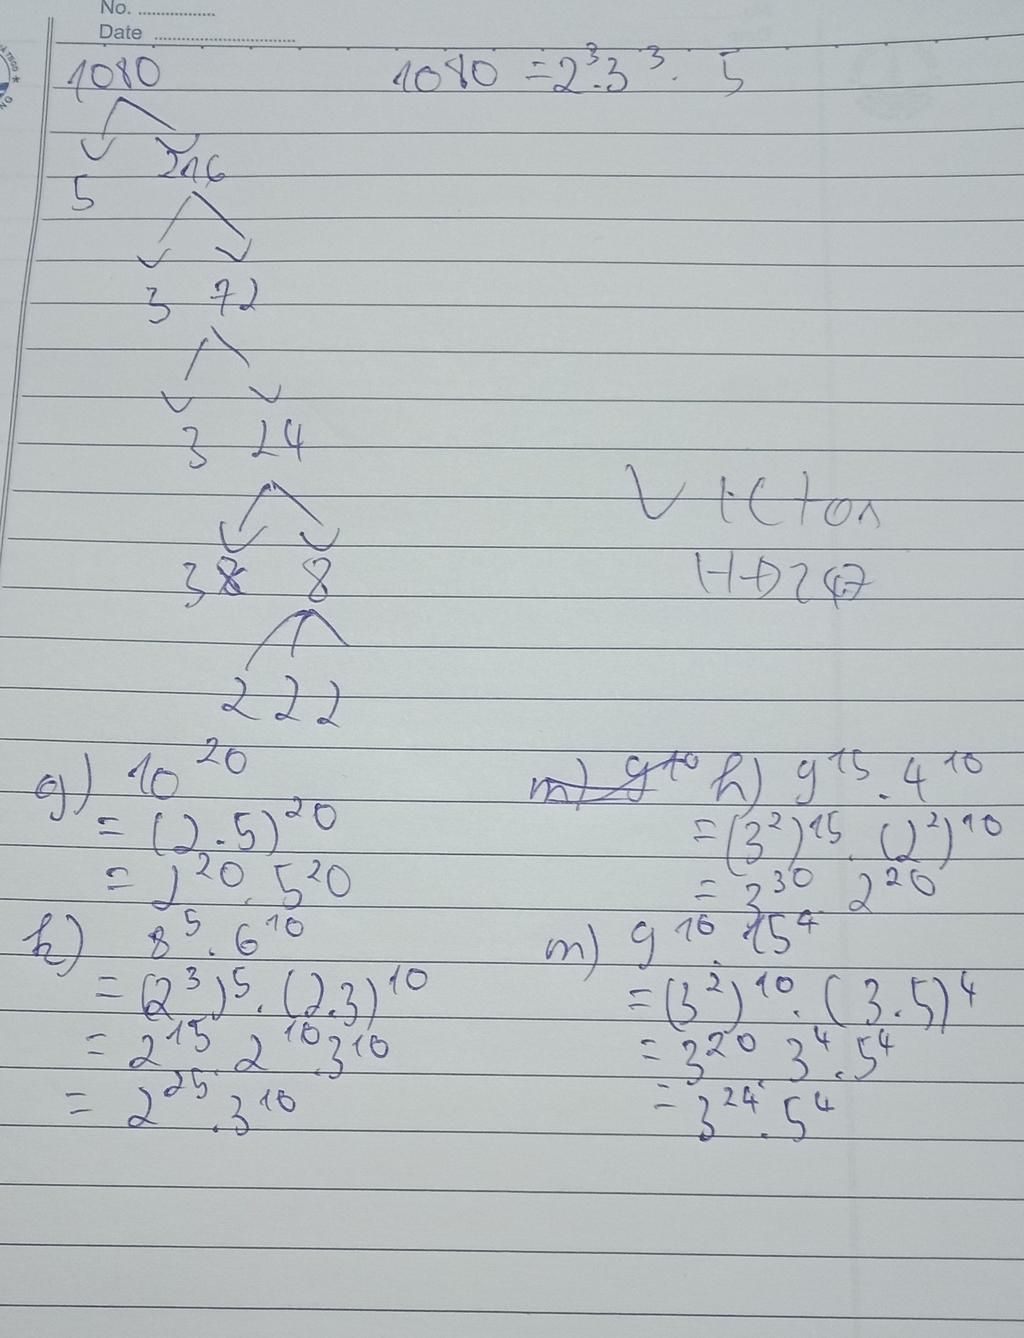 No. ................
Date ................................
1080
1080 = 2³.3³. 5
5 216
3 72
3 24
3 8
2 2 2
HD247
g) 10²⁰
= (2.5)²⁰
= 2²⁰. 5²⁰
h) 9¹⁵. 4¹⁰
= (3²)¹⁵. (2²)¹⁰
= 3³⁰. 2²⁰
k) 8⁵. 6¹⁰
= (2³)⁵. (2.3)¹⁰
= 2¹⁵. 2¹⁰.3¹⁰
= 2²⁵.3¹⁰
m) 9¹⁰. 15⁴
= (3²)¹⁰. (3.5)⁴
= 3²⁰. 3⁴. 5⁴
= 3²⁴. 5⁴